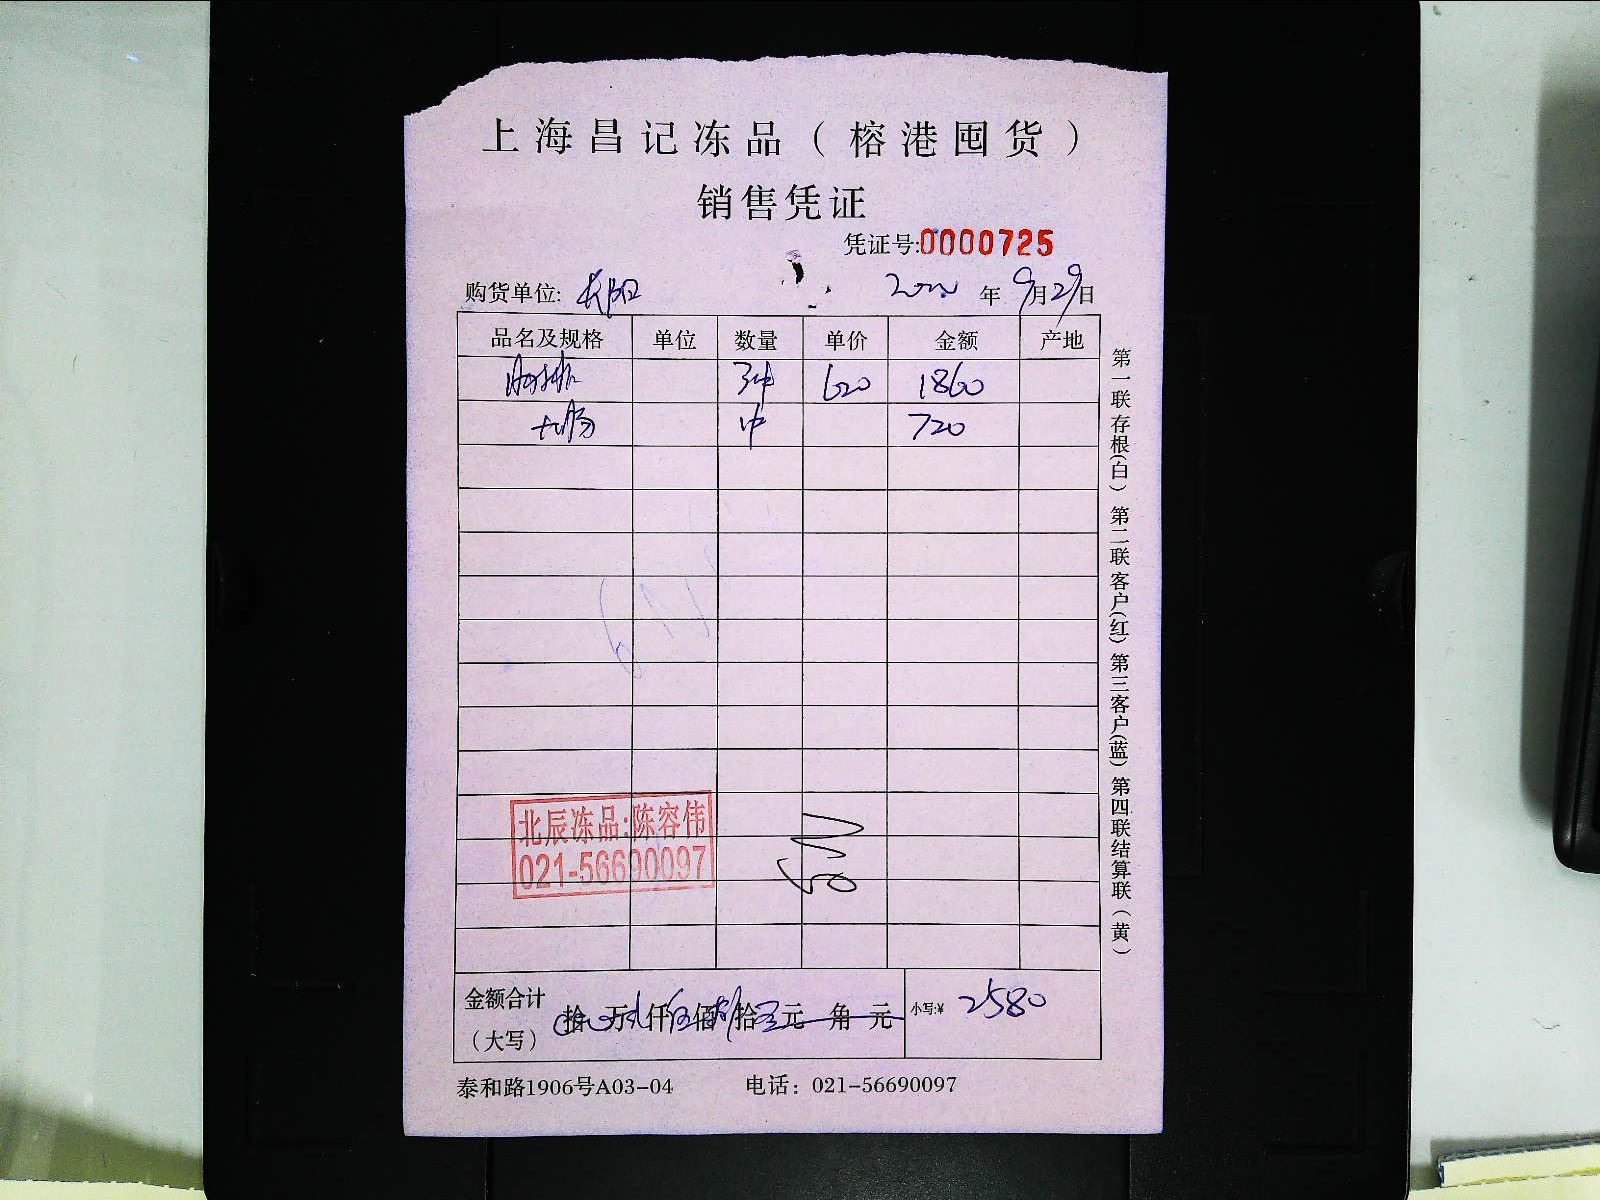 上海昌记冻品（榕港囤货）
销售凭证
凭证号:0000725
购货单位: 长阳 年9月29日
品名及规格 单位 数量 单价 金额 产地
3件 620 1860
大肠 1件 720
北辰冻品:陈容伟
021-56690097
金额合计
（大写） 拾 万 仟 佰 拾 元 角 元 小写:¥ 2580
泰和路1906号A03-04 电话：021-56690097
第一联存根(白) 第二联客户(红) 第三客户(蓝) 第四联结算联（黄）